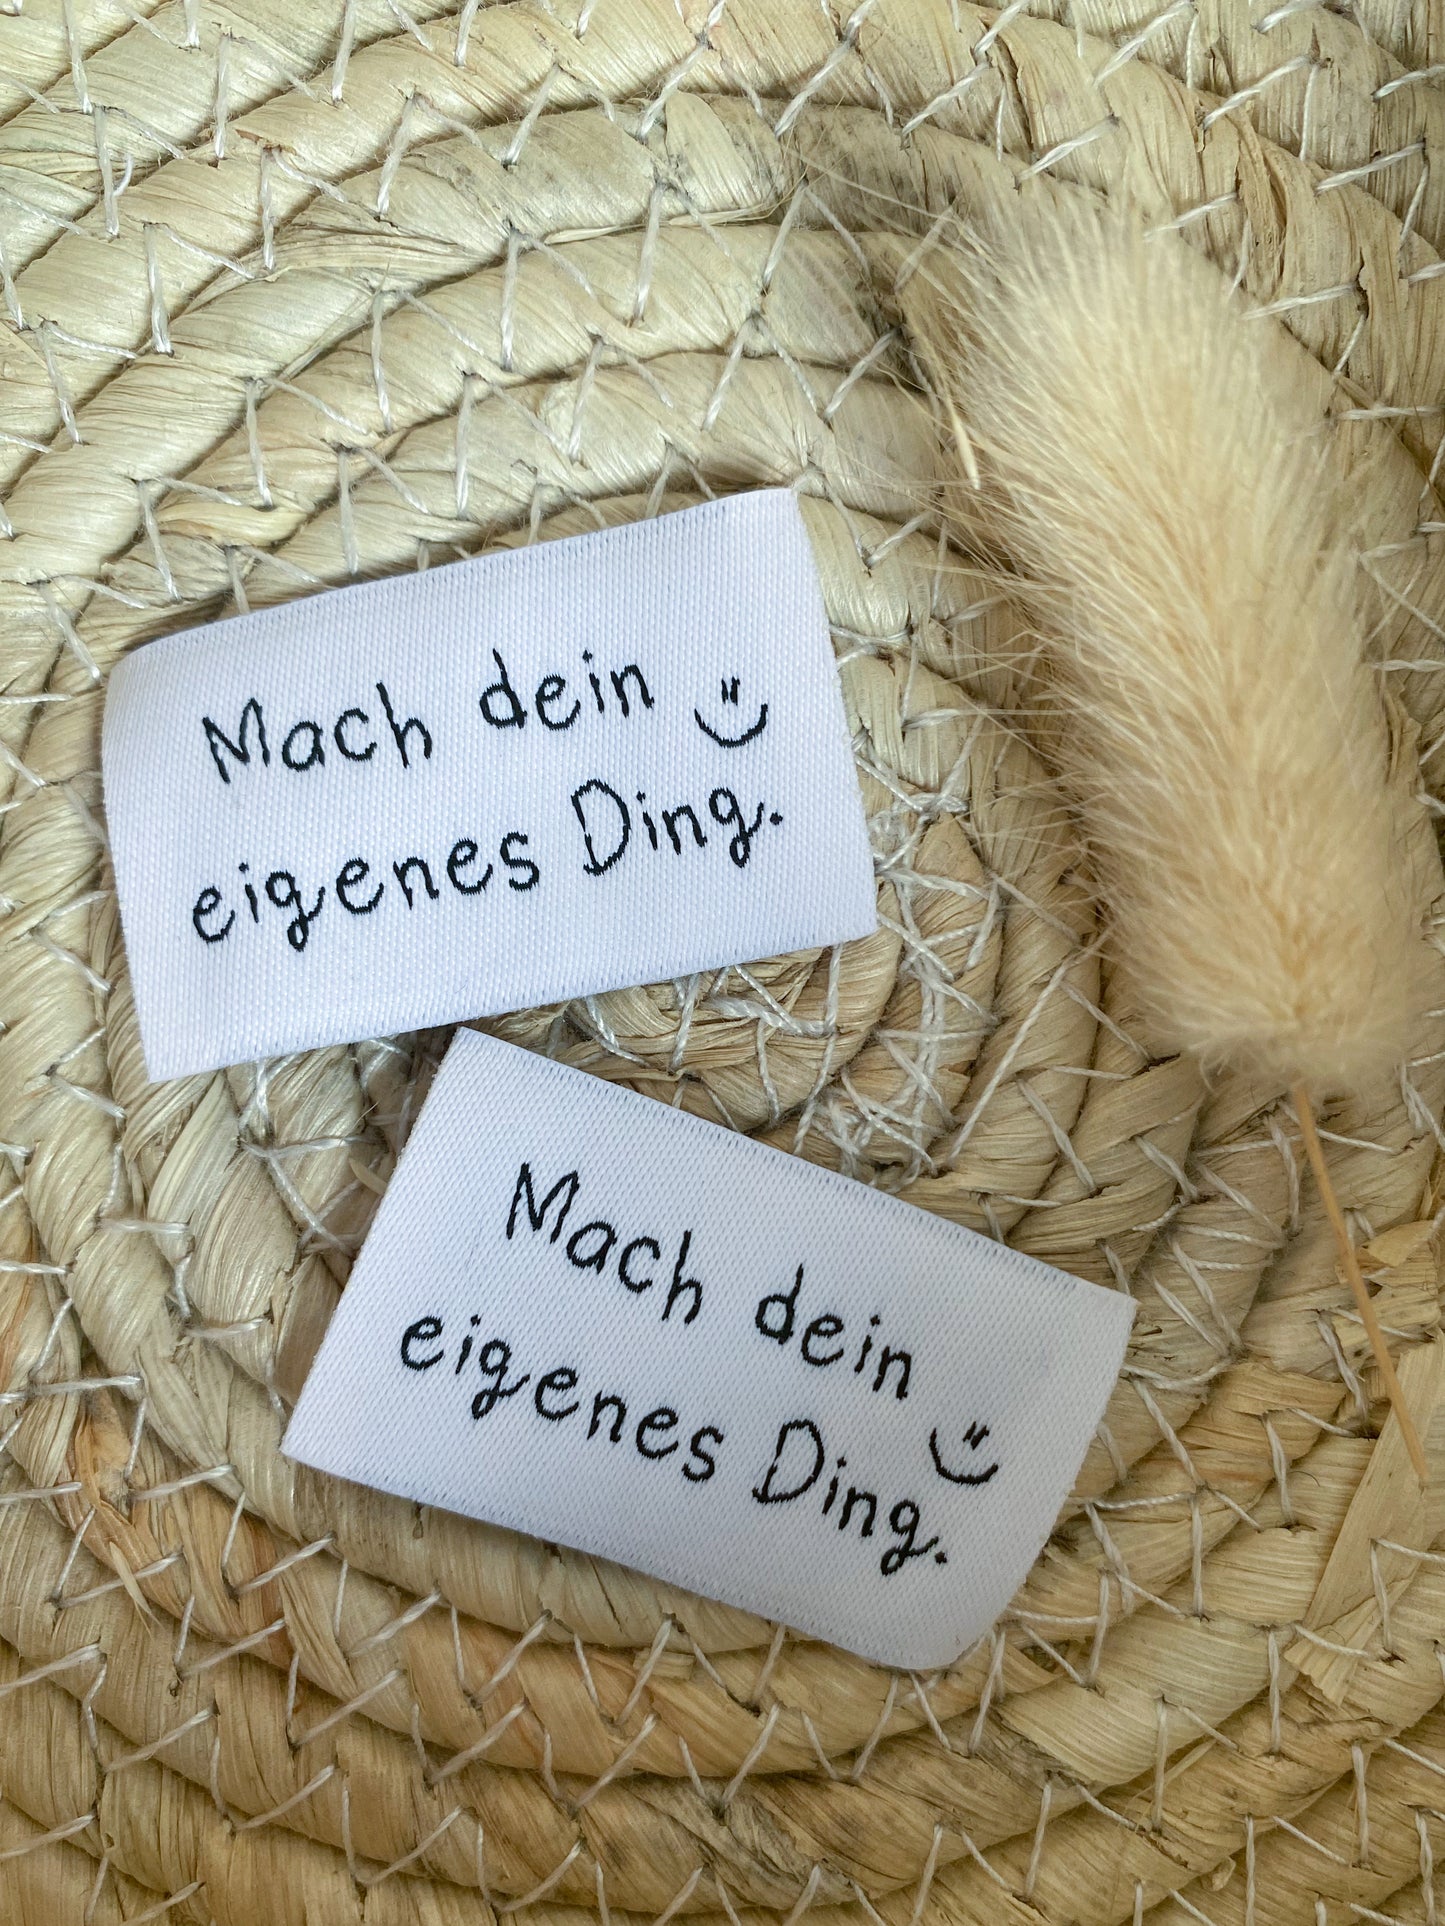 Mach dein
eigenes Ding.
Mach dein
eigenes Ding.